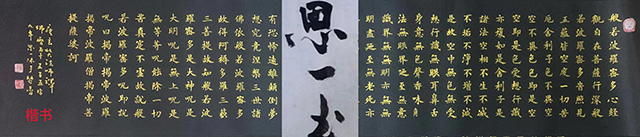 般若波羅蜜多心經
觀自在菩薩行深般
若波羅蜜多時照見
五蘊皆空度一切苦
厄舍利子色不異空
空不異色色即是空
空即是色受想行識
亦復如是舍利子是
諸法空相不生不滅
不垢不淨不增不減
是故空中無色無受
想行識無眼耳鼻舌
身意無色聲香味觸
法無眼界乃至無意
識界無無明亦無無
明盡乃至無老死亦
思一
有恐怖遠離顛倒夢
想究竟涅槃三世諸
佛依般若波羅蜜多
故得阿耨多羅三藐
三菩提故知般若波
羅蜜多是大神呪是
大明呪是無上呪是
無等等呪能除一切
苦真實不虛故說般
若波羅蜜多呪即說
呪曰揭帝揭帝波羅
揭帝波羅僧揭帝菩
提薩婆訶
楷书